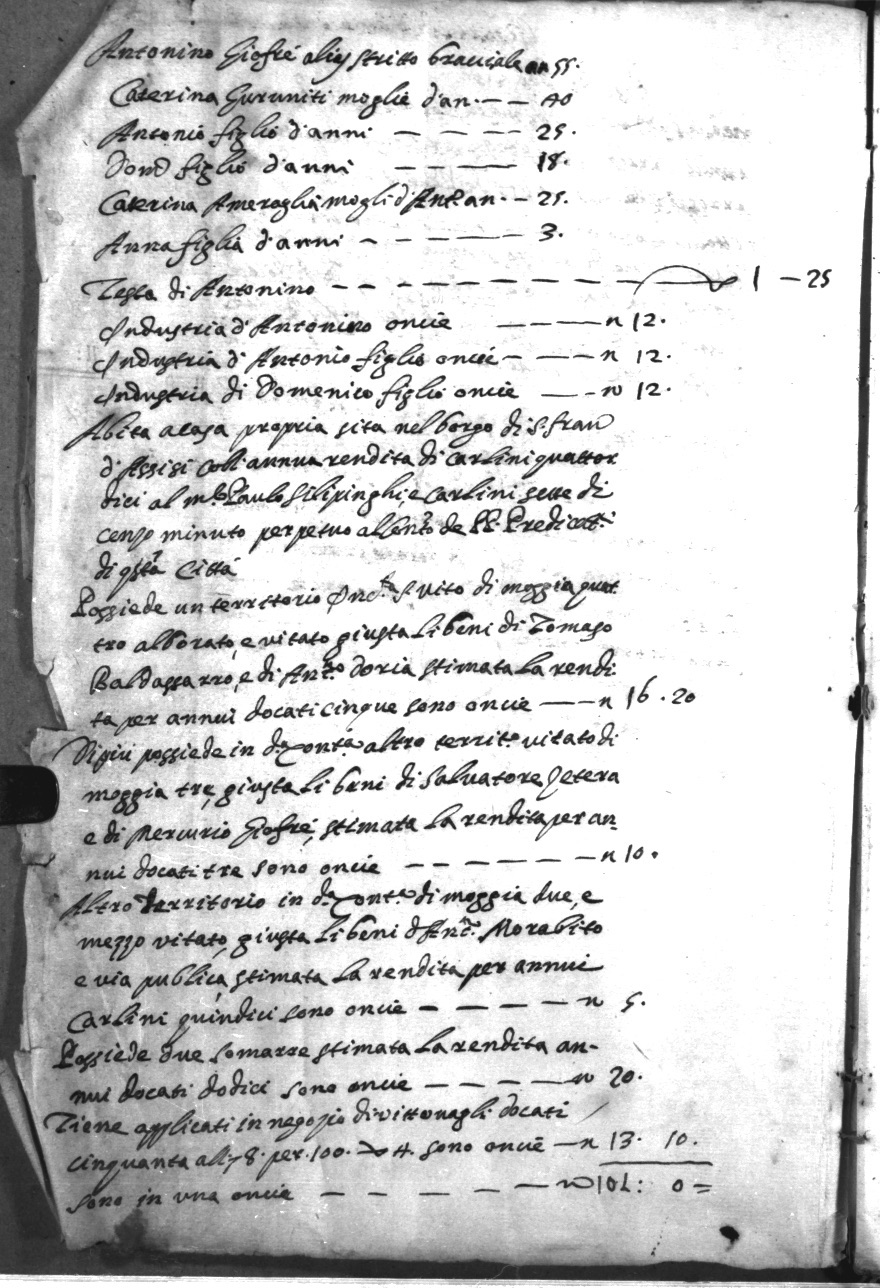 Antonino Giofrè alias stritto bracciale an 55.
Caterina Guruniti moglie d'an. — — 40
Antonio figlio d'anni — — — — 25.
Domco figlio d'anni — — — — 18.
Caterina Ameraglia mogli d'Anto. an. — 25.
Anna figlia d'anni — — — — 3.
Testa di Antonino — — — — — — — 1 — 25
Industria d'Antonino oncie — — — n 12.
Industria d'Antonio figlio oncie — — — n 12.
Industria di Domenico figlio oncie — — n 12.
Abita a casa propria sita nel borgo di S. Fran
d'Assisi coll annua rendita di carlini quattor
dici al Paulo Silipinghi, e carlini sette di
cenzo minuto perpetuo al de PP. Predicatti
di qsta Città
Possiede un territorio S. Vito di moggia quat
tro alborato, e vitato giusta li beni di Tomaso
Baldassarro, e di Anto. Doria stimata la rendi
ta per annui docati cinque sono oncie — n 16 . 20
Di più possiede in da. conta. altro territo. vitato di
moggia tre, giusta li beni di Salvatore Zetera
e di Mercurio Giofrè, stimata la rendita per an=
nui docati tre sono oncie — — — — — n 10.
Altro territorio in da. conta. di moggia due, e
mezzo vitato, giusta li beni d'Anto. Morabito
e via publica, stimata la rendita per annui
Carlini quindici sono oncie — — — — n 5.
Possiede due somarre stimata la rendita an-
nui docati dodici sono oncie — — — — n 20.
Tiene applicati in negozio di vittovagli docati
cinquanta all 8. per. 100. 4. sono oncie — n 13. 10.
sono in una oncie — — — — — n 101: 0 =